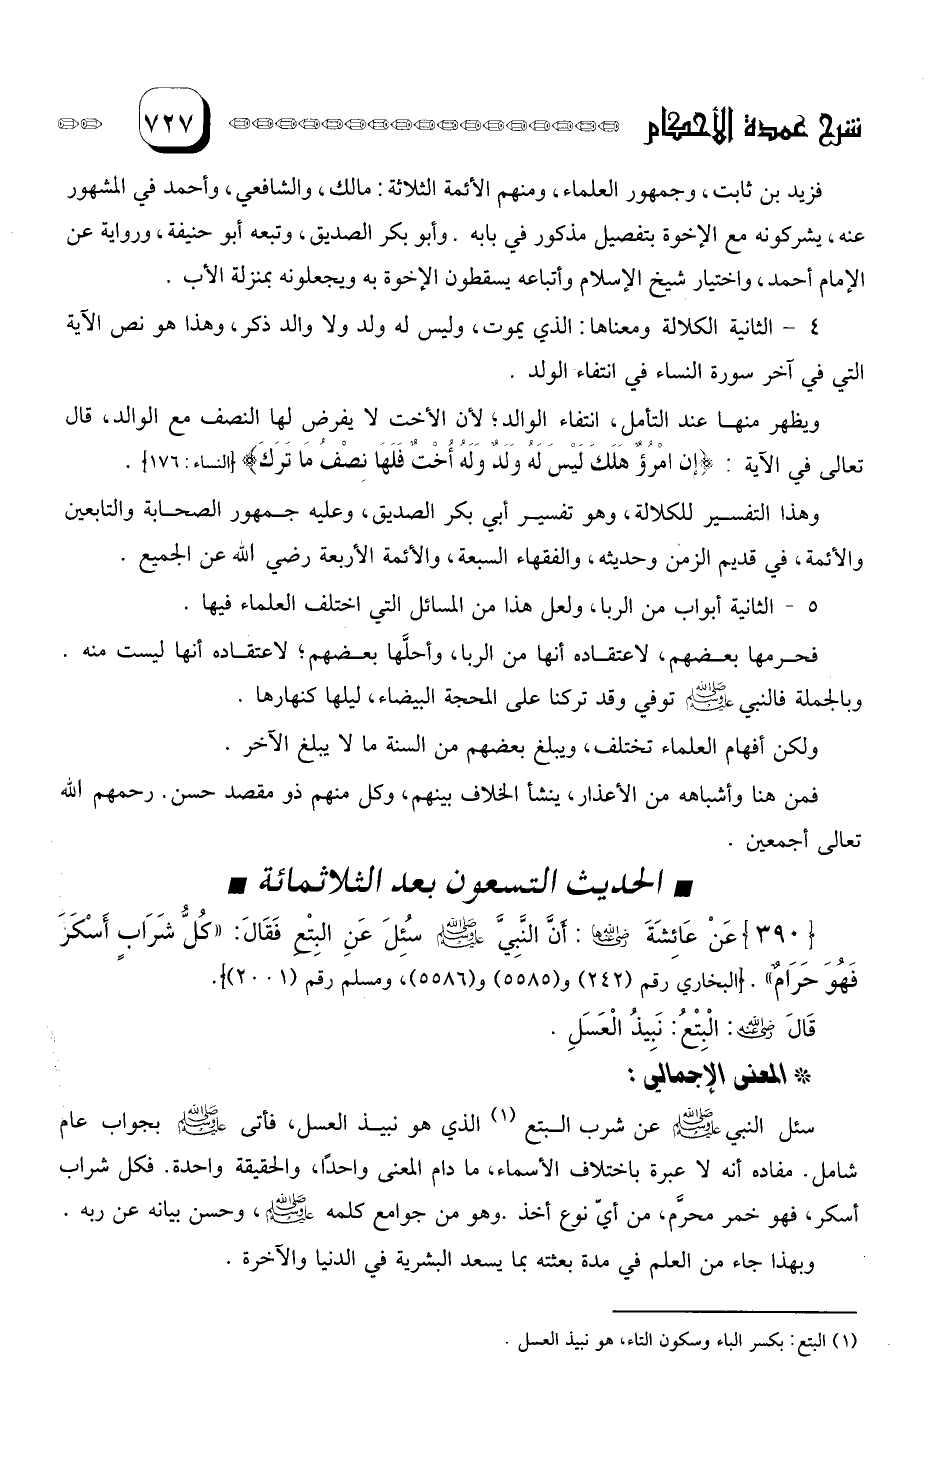 شرح عمدة الأحكام
٧٢٧
فزيد بن ثابت، وجمهور العلماء، ومنهم الأئمة الثلاثة: مالك، والشافعي، وأحمد في المشهور
عنه، يشركونه مع الإخوة بتفصيل مذكور في بابه . وأبو بكر الصديق، وتبعه أبو حنيفة، ورواية عن
الإمام أحمد، واختيار شيخ الإسلام وأتباعه يسقطون الإخوة به ويجعلونه بمنزلة الأب .
٤ – الثانية الكلالة ومعناها: الذي يموت، وليس له ولد ولا والد ذكر، وهذا هو نص الآية
التي في آخر سورة النساء في انتفاء الولد .
ويظهر منها عند التأمل، انتفاء الوالد؛ لأن الأخت لا يفرض لها النصف مع الوالد، قال
تعالى في الآية : ﴿إِن امْرُؤٌ هَلَكَ لَيْسَ لَهُ وَلَدٌ وَلَهُ أُخْتٌ فَلَهَا نِصْفُ مَا تَرَكَ﴾ {النساء: ١٧٦} .
وهذا التفسير للكلالة، وهو تفسير أبي بكر الصديق، وعليه جمهور الصحابة والتابعين
والأئمة، في قديم الزمن وحديثه، والفقهاء السبعة، والأئمة الأربعة رضي الله عن الجميع .
٥ - الثانية أبواب من الربا، ولعل هذا من المسائل التي اختلف العلماء فيها .
فحرمها بعضهم، لاعتقاده أنها من الربا، وأحلَّها بعضهم؛ لاعتقاده أنها ليست منه .
وبالجملة فالنبي ﷺ توفي وقد تركنا على المحجة البيضاء، ليلها كنهارها .
ولكن أفهام العلماء تختلف، ويبلغ بعضهم من السنة ما لا يبلغ الآخر .
فمن هنا وأشباهه من الأعذار، ينشأ الخلاف بينهم، وكل منهم ذو مقصد حسن. رحمهم الله
تعالى أجمعين .
■ الحديث التسعون بعد الثلاثمائة ■
{٣٩٠} عَنْ عَائِشَةَ رضي الله عنها : أَنَّ النَّبِيَّ ﷺ سُئِلَ عَنِ البِتْعِ فَقَالَ: «كُلُّ شَرَابٍ أَسْكَرَ
فَهُوَ حَرَامٌ» . {البخاري رقم (٢٤٢) و(٥٥٨٥) و(٥٥٨٦)، ومسلم رقم (٢٠٠١)}.
قَالَ رضي الله عنه: الْبِتْعُ: نَبِيذُ الْعَسَلِ .
* المعنى الإجمالي :
سئل النبي ﷺ عن شرب البتع (١) الذي هو نبيذ العسل، فأتى ﷺ بجواب عام
شامل. مفاده أنه لا عبرة باختلاف الأسماء، ما دام المعنى واحدًا، والحقيقة واحدة. فكل شراب
أسكر، فهو خمر محرَّم، من أيّ نوع أخذ .وهو من جوامع كلمه ﷺ، وحسن بيانه عن ربه .
وبهذا جاء من العلم في مدة بعثته بما يسعد البشرية في الدنيا والآخرة .
(١) البتع: بكسر الباء وسكون التاء، هو نبيذ العسل .